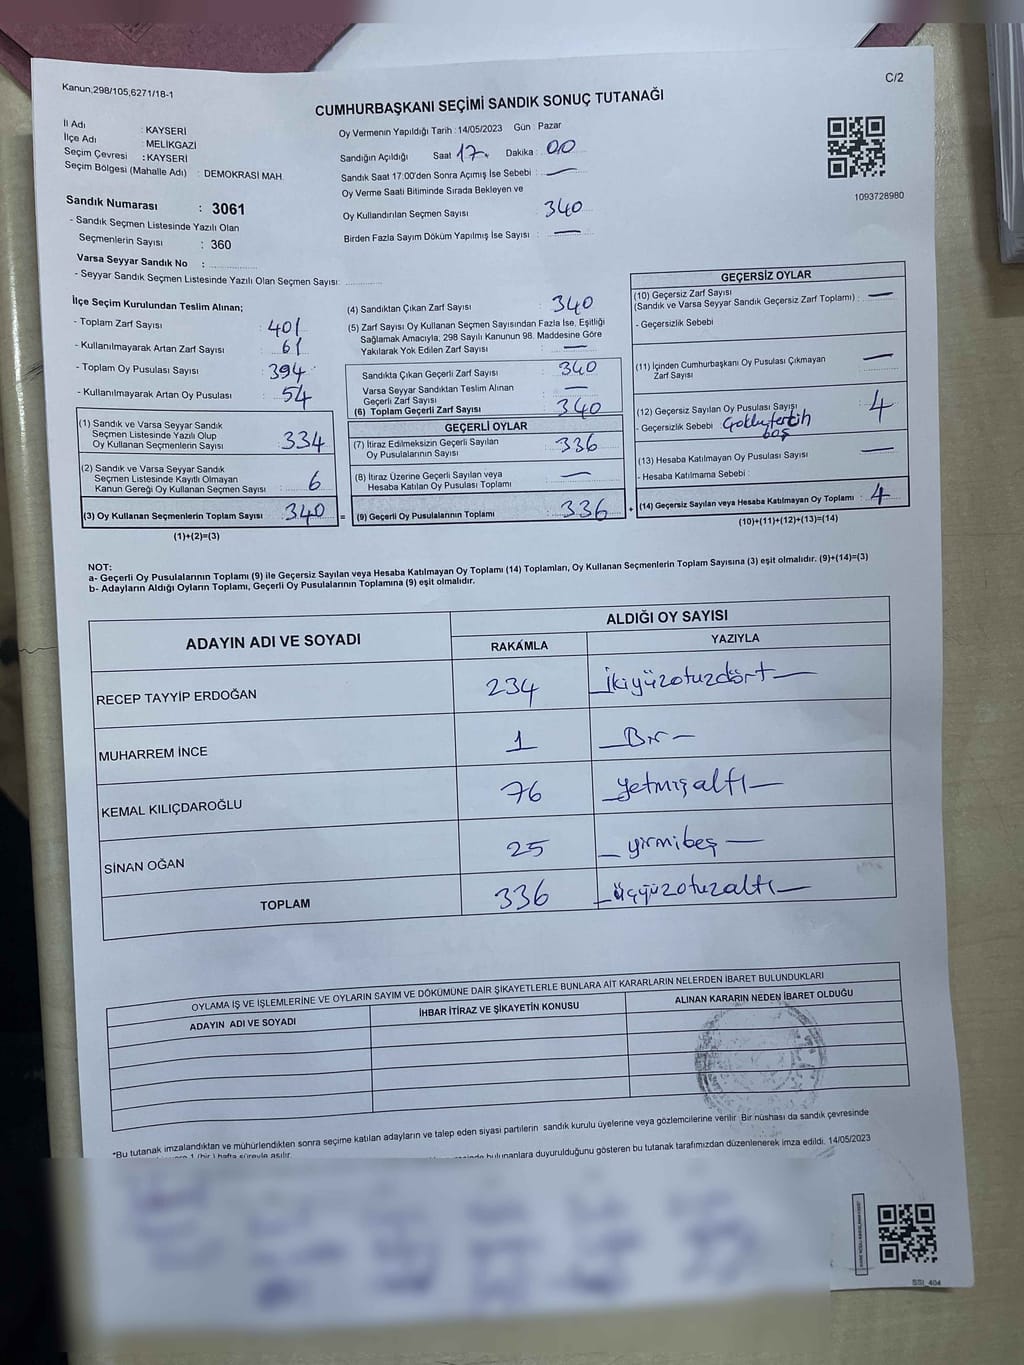 Kanun;298/105,6271/18-1
C/2
CUMHURBAŞKANI SEÇİMİ SANDIK SONUÇ TUTANAĞI
İl Adı : KAYSERİ
İlçe Adı : MELİKGAZİ
Seçim Çevresi : KAYSERİ
Seçim Bölgesi (Mahalle Adı) : DEMOKRASİ MAH.
Sandık Numarası : 3061
- Sandık Seçmen Listesinde Yazılı Olan
Seçmenlerin Sayısı : 360
Varsa Seyyar Sandık No :
- Seyyar Sandık Seçmen Listesinde Yazılı Olan Seçmen Sayısı:
Oy Vermenin Yapıldığı Tarih : 14/05/2023 Gün : Pazar
Sandığın Açıldığı Saat 17 Dakika : 00
Sandık Saat 17:00'den Sonra Açımış İse Sebebi : —
Oy Verme Saati Bitiminde Sırada Bekleyen ve
Oy Kullandırılan Seçmen Sayısı 340
Birden Fazla Sayım Döküm Yapılmış İse Sayısı : —
1093728980
İlçe Seçim Kurulundan Teslim Alınan;
- Toplam Zarf Sayısı : 401
- Kullanılmayarak Artan Zarf Sayısı : 61
- Toplam Oy Pusulası Sayısı : 394
- Kullanılmayarak Artan Oy Pusulası : 54
(1) Sandık ve Varsa Seyyar Sandık
Seçmen Listesinde Yazılı Olup
Oy Kullanan Seçmenlerin Sayısı : 334
(2) Sandık ve Varsa Seyyar Sandık
Seçmen Listesinde Kayıtlı Olmayan
Kanun Gereği Oy Kullanan Seçmen Sayısı : 6
(3) Oy Kullanan Seçmenlerin Toplam Sayısı : 340 =
(1)+(2)=(3)
(4) Sandıktan Çıkan Zarf Sayısı : 340
(5) Zarf Sayısı Oy Kullanan Seçmen Sayısından Fazla İse, Eşitliği
Sağlamak Amacıyla, 298 Sayılı Kanunun 98. Maddesine Göre
Yakılarak Yok Edilen Zarf Sayısı : —
Sandıkta Çıkan Geçerli Zarf Sayısı : 340
Varsa Seyyar Sandıktan Teslim Alınan
Geçerli Zarf Sayısı : —
(6) Toplam Geçerli Zarf Sayısı : 340
GEÇERLİ OYLAR
(7) İtiraz Edilmeksizin Geçerli Sayılan
Oy Pusulalarının Sayısı : 336
(8) İtiraz Üzerine Geçerli Sayılan veya
Hesaba Katılan Oy Pusulası Toplamı : —
(9) Geçerli Oy Pusulalarının Toplamı : 336 +
GEÇERSİZ OYLAR
(10) Geçersiz Zarf Sayısı
(Sandık ve Varsa Seyyar Sandık Geçersiz Zarf Toplamı) : —
- Geçersizlik Sebebi
(11) İçinden Cumhurbaşkanı Oy Pusulası Çıkmayan
Zarf Sayısı —
(12) Geçersiz Sayılan Oy Pusulası Sayısı : 4
- Geçersizlik Sebebi
boş
(13) Hesaba Katılmayan Oy Pusulası Sayısı —
- Hesaba Katılmama Sebebi :
(14) Geçersiz Sayılan veya Hesaba Katılmayan Oy Toplamı : 4
(10)+(11)+(12)+(13)=(14)
NOT:
a- Geçerli Oy Pusulalarının Toplamı (9) ile Geçersiz Sayılan veya Hesaba Katılmayan Oy Toplamı (14) Toplamları, Oy Kullanan Seçmenlerin Toplam Sayısına (3) eşit olmalıdır. (9)+(14)=(3)
b- Adayların Aldığı Oyların Toplamı, Geçerli Oy Pusulalarının Toplamına (9) eşit olmalıdır.
ADAYIN ADI VE SOYADI
ALDIĞI OY SAYISI
RAKAMLA YAZIYLA
RECEP TAYYİP ERDOĞAN 234 İkiyüzotuzdört
MUHARREM İNCE 1 Bir
KEMAL KILIÇDAROĞLU 76 yetmişaltı
SİNAN OĞAN 25 yirmibeş
TOPLAM 336 üçyüzotuzaltı
OYLAMA İŞ VE İŞLEMLERİNE VE OYLARIN SAYIM VE DÖKÜMÜNE DAİR ŞİKAYETLERLE BUNLARA AİT KARARLARIN NELERDEN İBARET BULUNDUKLARI
ADAYIN ADI VE SOYADI İHBAR İTİRAZ VE ŞİKAYETİN KONUSU ALINAN KARARIN NEDEN İBARET OLDUĞU
*Bu tutanak imzalandıktan ve mühürlendikten sonra seçime katılan adayların ve talep eden siyasi partilerin sandık kurulu üyelerine veya gözlemcilerine verilir. Bir nüshası da sandık çevresinde
1 (bir) hafta süreyle asılır.
bulunanlara duyurulduğunu gösteren bu tutanak tarafımızdan düzenlenerek imza edildi. 14/05/2023
SSI_404